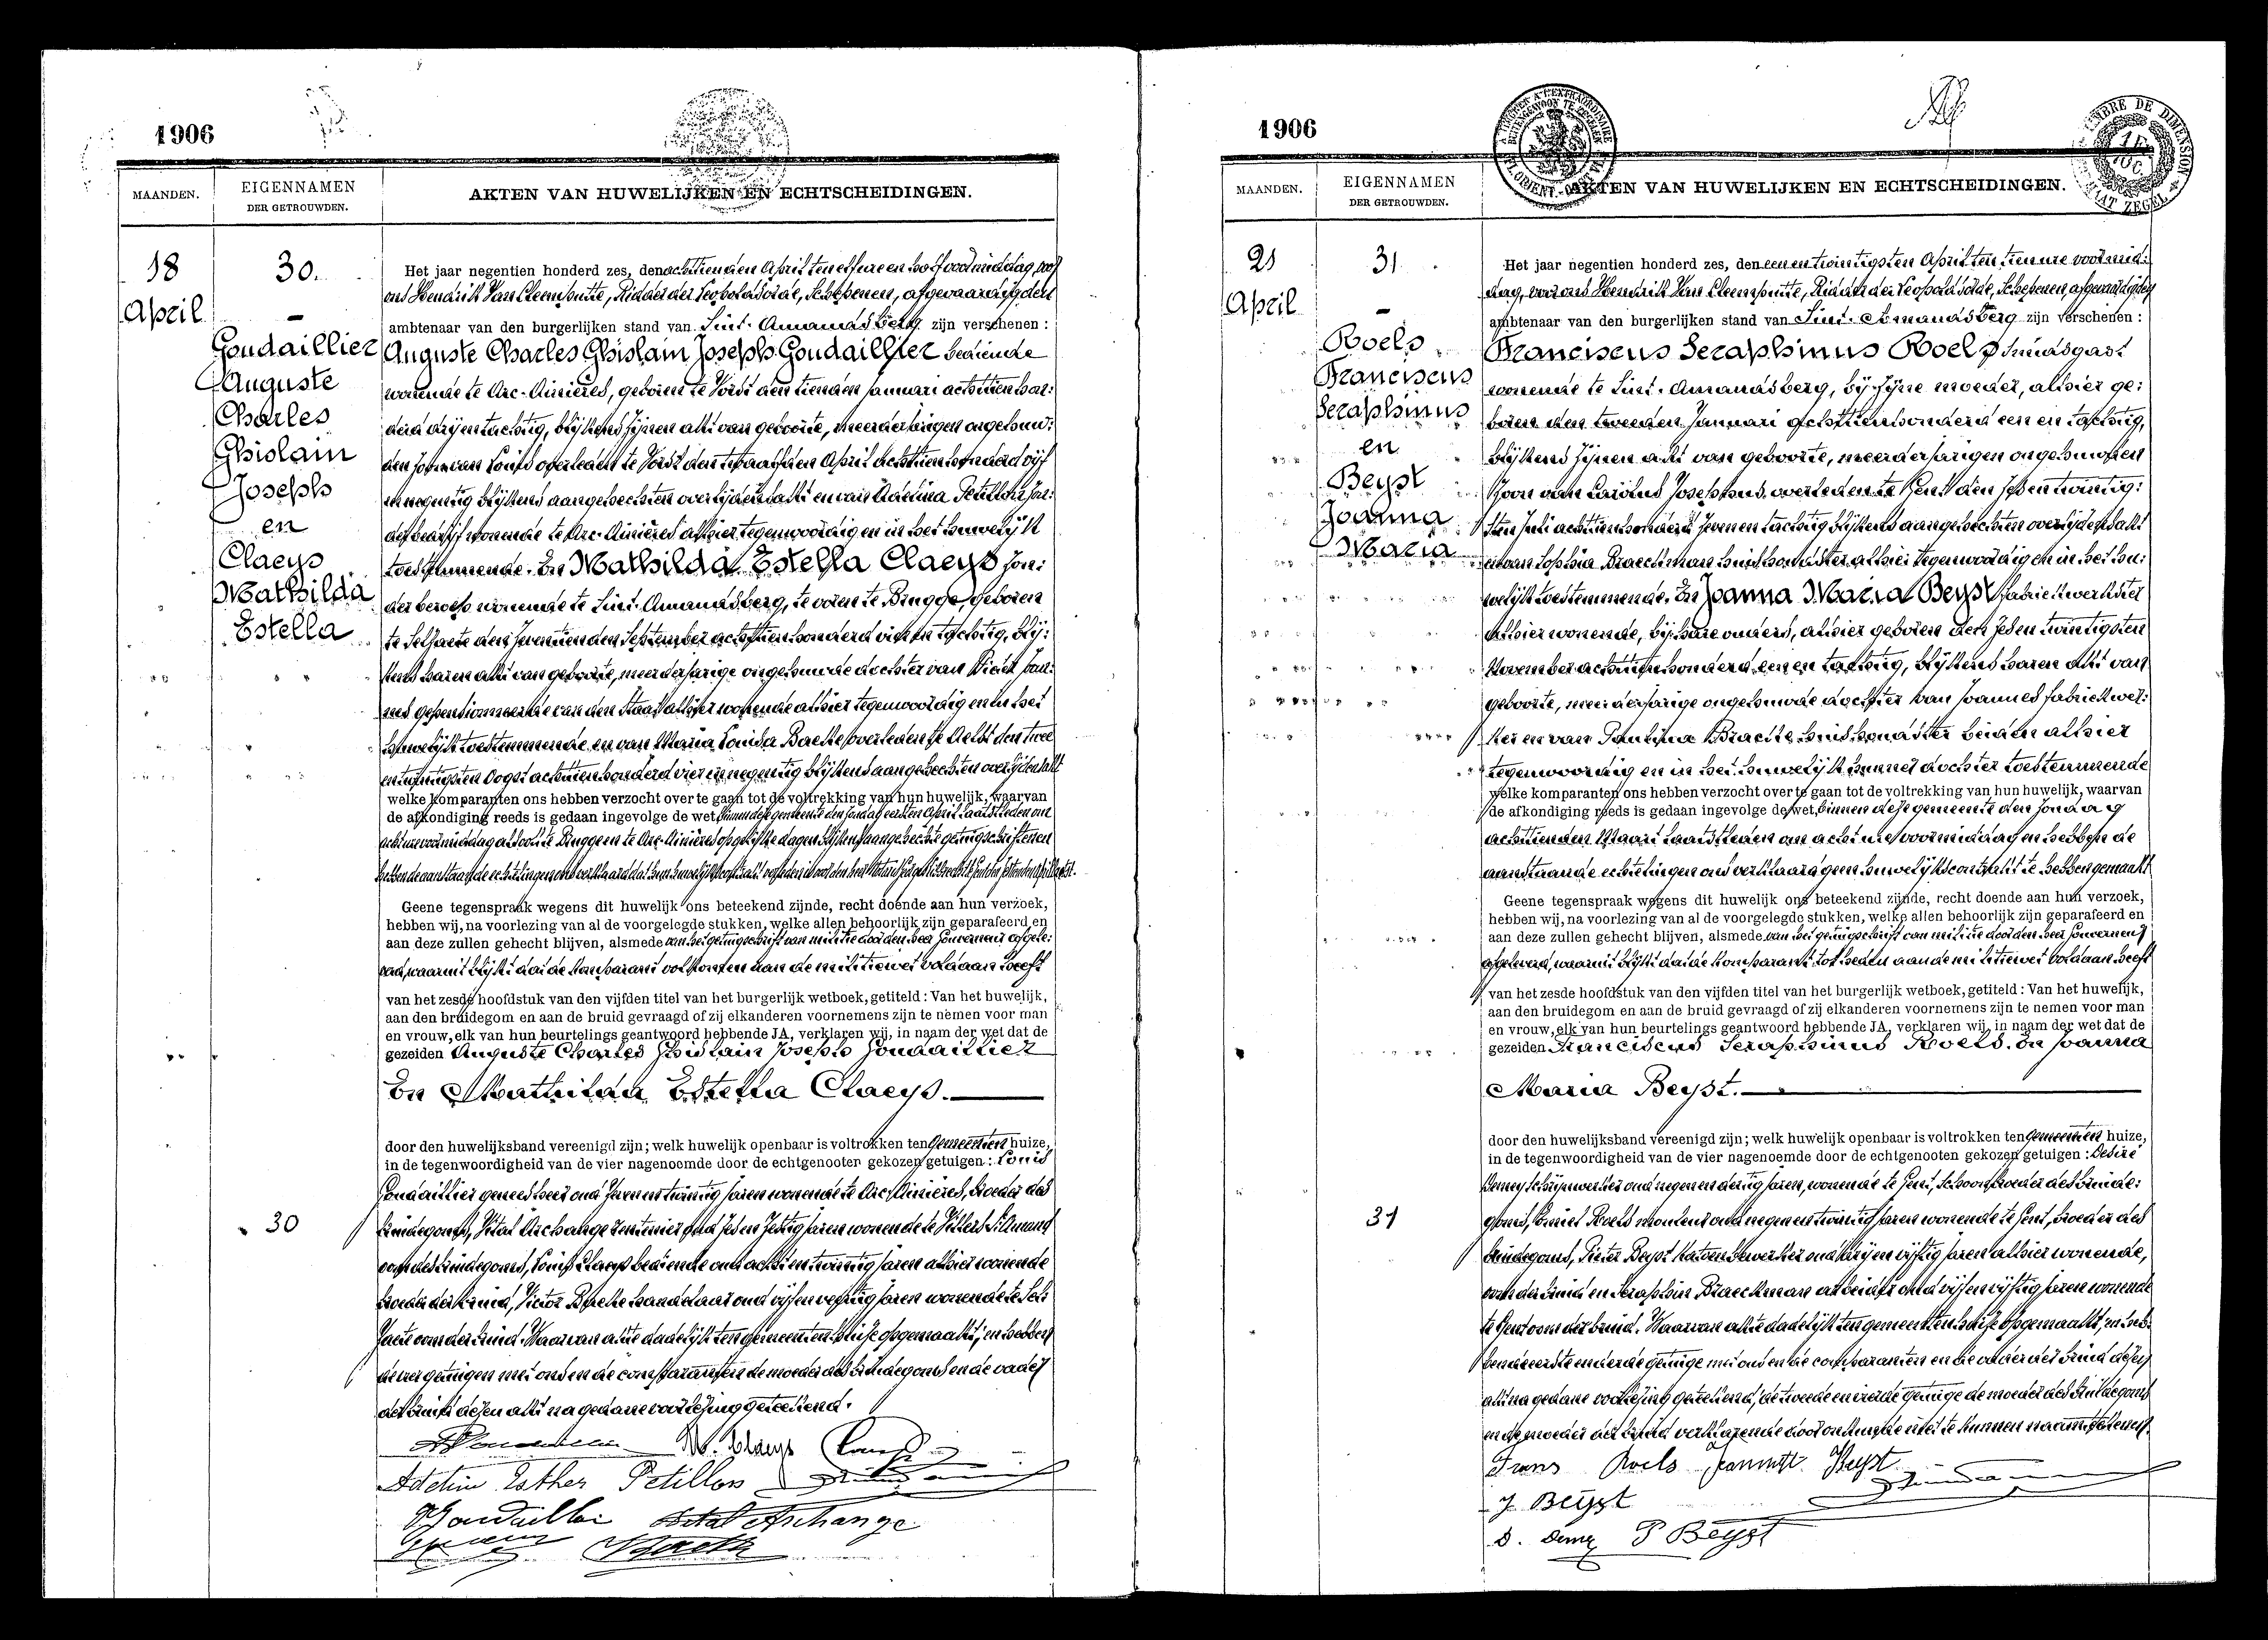 1906
MAANDEN.
EIGENNAMEN
DER GETROUWDEN.
AKTEN VAN HUWELIJKEN EN ECHTSCHEIDINGEN.
18
April
30.
Goudaillier
Auguste
Charles
Ghislain
Joseph
en
Claeys
Mathilda
Estella
30
Het jaar negentien honderd zes, den achttienden April ten elf ure en half voormiddag, voor
ons Hendrik Van Cleemputte, Ridder der Leopoldsorde, Schepenen, afgevaardigden
ambtenaar van den burgerlijken stand van Sint-Amandsberg zijn verschenen :
Auguste Charles Ghislain Joseph Goudaillier bediende
wonende te Arc-Ainières, geboren te Vorst den tienden Januari achttien hon:
derd drijentachtig, blijkens zijnen akt van geboorte, meerderjarigen ongehuw:
den zoon van Louis overleden te Vorst den twaalfden April achttien honderd vijf
en negentig blijkens aangehechten overlijdensakt en van Adelina Petillon zon:
der bedrijf wonende te Arc-Ainières alhier tegenwoordig en in het huwelijk
toestemmende. En Mathilda Estella Claeys zon:
der beroep wonende te Sint-Amandsberg, te voren te Brugge, geboren
te Selzaete den zeventienden September achttien honderd vier en tachtig, blij:
kens haren akt van geboorte, meerderjarige ongehuwde dochter van Pieter Joan:
nes gepensionneerde van den Staat alhier wonende alhier tegenwoordig en in het
huwelijk toestemmende en van Maria Louisa Baecke overleden te Aelst den twee
en twintigsten Oogst achttien honderd vier en negentig blijkens aangehechten overlijdensakt
welke komparanten ons hebben verzocht over te gaan tot de voltrekking van hun huwelijk, waarvan
de afkondiging reeds is gedaan ingevolge de wet, binnen deze gemeente den zondag eersten April laatstleden om
acht ure voormiddag alsook te Brugge en te Arc-Ainières op gelijke dagen blijkens aangehechte getuigschriften en
hebben de aanstaande echtelingen ons verklaard dat hun huwelijkscontract verleden is voor den heer Notaris
Geene tegenspraak wegens dit huwelijk ons beteekend zijnde, recht doende aan hun verzoek,
hebben wij, na voorlezing van al de voorgelegde stukken, welke allen behoorlijk zijn geparafeerd en
aan deze zullen gehecht blijven, alsmede van het getuigschrift van militie door den heer Gouverneur afgele:
verd, waaruit blijkt dat de komparant volkomen aan de militiewet voldaan heeft
van het zesde hoofdstuk van den vijfden titel van het burgerlijk wetboek, getiteld : Van het huwelijk,
aan den bruidegom en aan de bruid gevraagd of zij elkanderen voornemens zijn te nemen voor man
en vrouw, elk van hun beurtelings geantwoord hebbende JA, verklaren wij, in naam der wet dat de
gezeiden Auguste Charles Ghislain Joseph Goudaillier
En Mathilda Estella Claeys.
door den huwelijksband vereenigd zijn; welk huwelijk openbaar is voltrokken ten Gemeenten huize,
in de tegenwoordigheid van de vier nagenoemde door de echtgenooten gekozen getuigen : Louis
Goudaillier geneesheer oud zeven en twintig jaren wonende te Arc-Ainières, broeder des
bruidegoms, Vital Archange rentenier oud zes en zestig jaren wonende te Villers St Amand
oom des bruidegoms, Louis Claeys bediende oud acht en twintig jaren alhier wonende
broeder der bruid, Victor Baecke handelaar oud vijf en veertig jaren wonende te Sel:
zaete oom der bruid. Waarvan akte dadelijk ten gemeenten huize opgemaakt; en hebben
de vier getuigen met ons en de comparanten de moeder des bruidegoms en de vader
der bruid dezen akt na gedane voorlezing geteekend.
M. Claeys
Adeline Esther Petillon
Goudaillier Vital Archange
1906
MAANDEN.
EIGENNAMEN
DER GETROUWDEN.
AKTEN VAN HUWELIJKEN EN ECHTSCHEIDINGEN.
21
April
31.
Roels
Franciscus
Seraphinus
en
Beyst
Joanna
Maria
31
Het jaar negentien honderd zes, den een en twintigsten April ten tien ure voormid:
dag, voor ons Hendrik Van Cleemputte, Ridder der Leopoldsorde, Schepenen, afgevaardigden
ambtenaar van den burgerlijken stand van Sint-Amandsberg zijn verschenen :
Franciscus Seraphinus Roels smidsgast
wonende te Sint-Amandsberg, bij zijne moeder, alhier ge:
boren den tweeden Januari achttienhonderd een en tachtig,
blijkens zijnen akt van geboorte, meerderjarigen ongehuwden
zoon van Carolus Josephus overleden te Gent den zes en twintig:
sten Juli achttienhonderd zeven en tachtig blijkens aangehechten overlijdensakt
en van Sophia Braeckman huishoudster alhier tegenwoordig en in het hu:
welijk toestemmende. En Joanna Maria Beyst fabriekwerkster
alhier wonende, bij hare ouders, alhier geboren den zes en twintigsten
November achttienhonderd een en tachtig, blijkens haren akt van
geboorte, meerderjarige ongehuwde dochter van Joannes fabriekwer:
ker en van Paulina Braecke huishoudster beiden alhier
tegenwoordig en in het huwelijk hunner dochter toestemmende
welke komparanten ons hebben verzocht over te gaan tot de voltrekking van hun huwelijk, waarvan
de afkondiging reeds is gedaan ingevolge de wet, binnen deze gemeente den zondag
achttienden Maart laatstleden om acht ure voormiddag en hebben de
aanstaande echtelingen ons verklaard geen huwelijkscontrakt te hebben gemaakt
Geene tegenspraak wegens dit huwelijk ons beteekend zijnde, recht doende aan hun verzoek,
hebben wij, na voorlezing van al de voorgelegde stukken, welke allen behoorlijk zijn geparafeerd en
aan deze zullen gehecht blijven, alsmede van het getuigschrift van militie door den heer Gouverneur
afgeleverd, waaruit blijkt dat de komparant tot heden aan de militiewet voldaan heeft
van het zesde hoofdstuk van den vijfden titel van het burgerlijk wetboek, getiteld : Van het huwelijk,
aan den bruidegom en aan de bruid gevraagd of zij elkanderen voornemens zijn te nemen voor man
en vrouw, elk van hun beurtelings geantwoord hebbende JA, verklaren wij, in naam der wet dat de
gezeiden Franciscus Seraphinus Roels. En Joanna
Maria Beyst.
door den huwelijksband vereenigd zijn; welk huwelijk openbaar is voltrokken ten gemeenten huize,
in de tegenwoordigheid van de vier nagenoemde door de echtgenooten gekozen getuigen : Desiré
Demey schrijnwerker oud negen en dertig jaren, wonende te Gent, schoonbroeder des bruide:
goms, Roels oud negen en twintig jaren wonende te Gent, broeder des
bruidegoms, Pieter Beyst katoenbewerker oud drij en vijftig jaren alhier wonende,
oom der bruid en Seraphin Braeckman arbeider oud vijf en vijftig jaren wonende
te Gent oom der bruid. Waarvan akte dadelijk ten gemeenten huize opgemaakt, en heb:
ben de eerste en derde getuige met ons en de comparanten en de vader der bruid dezen
akt na gedane voorlezing geteekend, de tweede en vierde getuige de moeder des bruidegoms
en de moeder der bruid verklarende door onkunde niet te kunnen naamteekenen.
Frans Roels Beyst
J. Beyst
D. Demey P Beyst